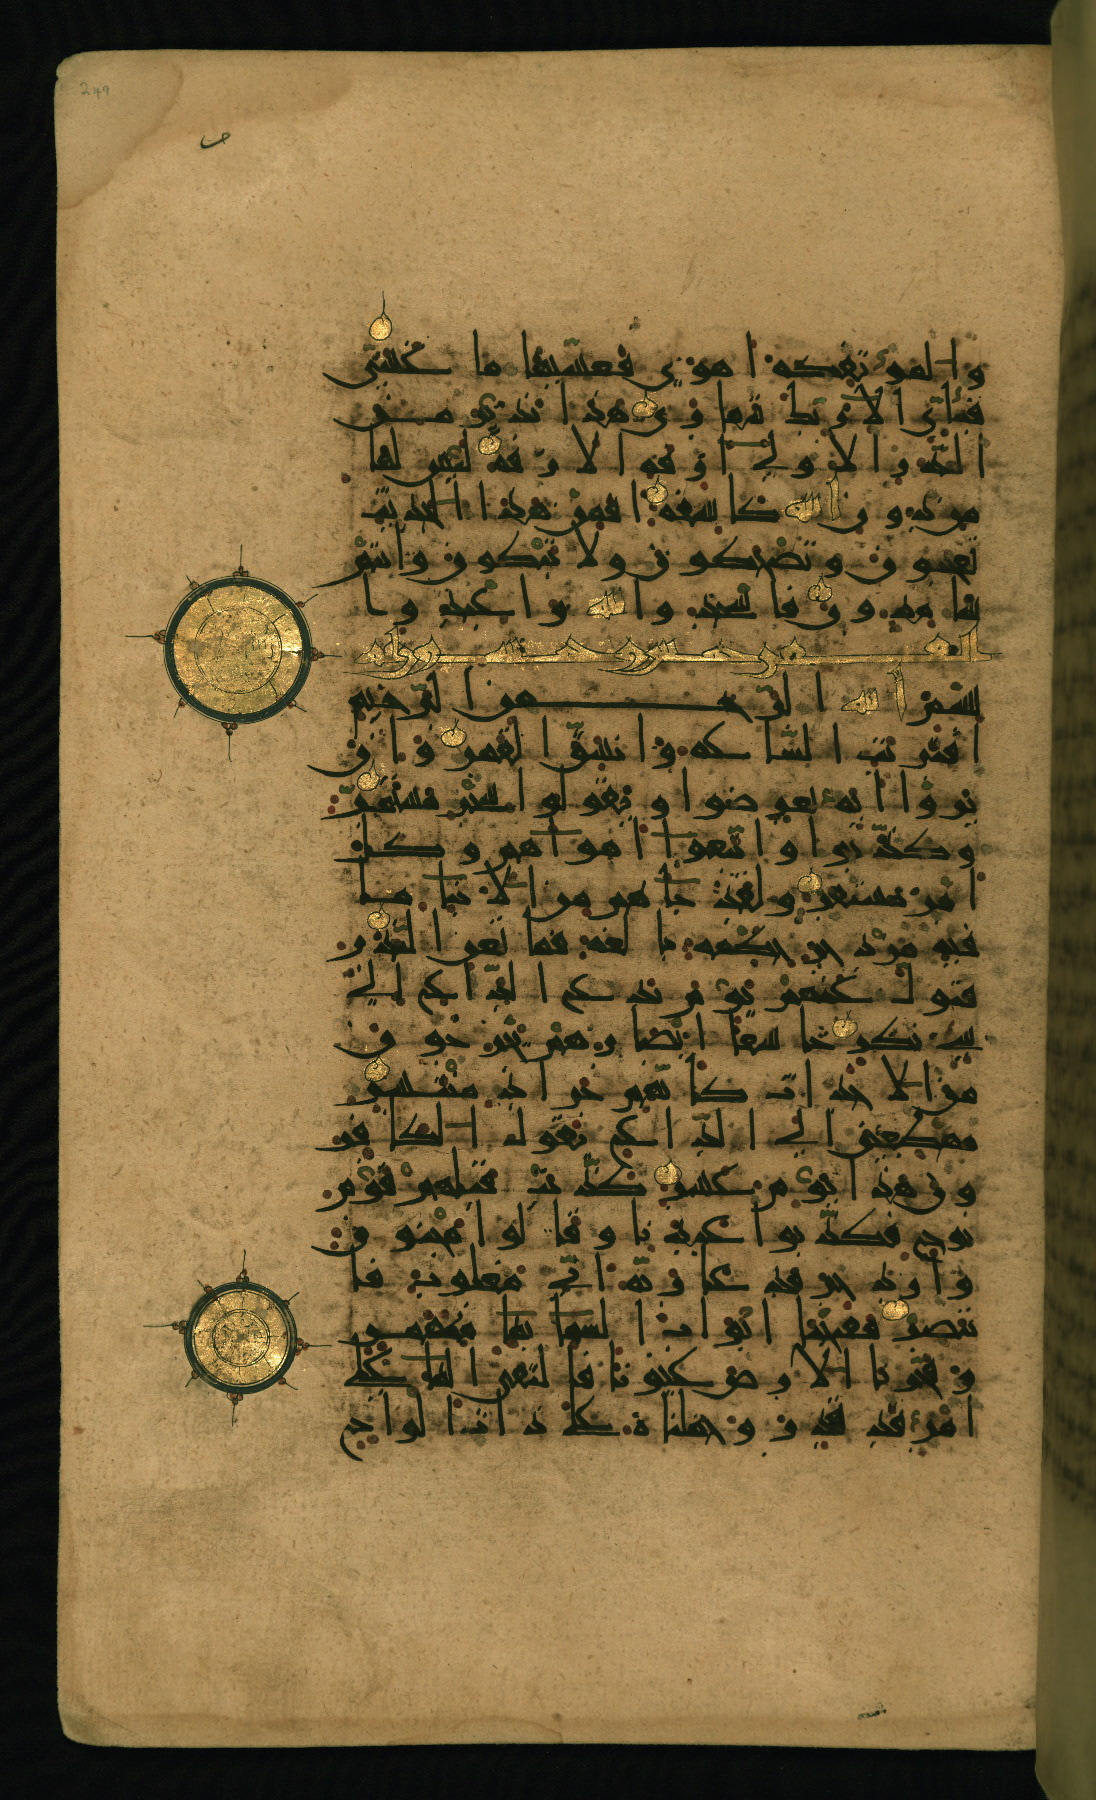 249
والمؤتفكة اهوى فغشيها ما غشى
فبأي الاء ربك تتمارى هذا نذير من
النذر الاولى ازفت الازفة ليس لها
من دون الله كاشفة افمن هذا الحديث
تعجبون وتضحكون ولا تبكون وانتم
سامدون فاسجدوا لله واعبدوا
القمر خمس وخمسون
بسم الله الرحمن الرحيم
اقتربت الساعة وانشق القمر وان
يروا اية يعرضوا ويقولوا سحر مستمر
وكذبوا واتبعوا اهواءهم وكل
امر مستقر ولقد جاءهم من الانباء ما
فيه مزدجر حكمة بالغة فما تغن النذر
فتول عنهم يوم يدع الداع الى
شيء نكر خاشعا ابصارهم يخرجون
من الاجداث كانهم جراد منتشر
مهطعين الى الداع يقول الكافر
ون هذا يوم عسر كذبت قبلهم قوم
نوح فكذبوا عبدنا وقالوا مجنون
وازدجر فدعا ربه اني مغلوب فا
نتصر ففتحنا ابواب السماء بماء منهمر
وفجرنا الارض عيونا فالتقى الماء على
امر قد قدر وحملناه على ذات الواح